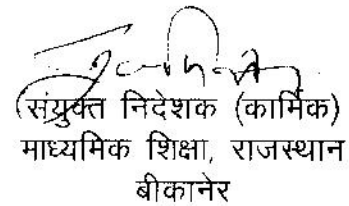 (संयुक्त निदेशक (कार्मिक)
माध्यमिक शिक्षा, राजस्थान
बीकानेर